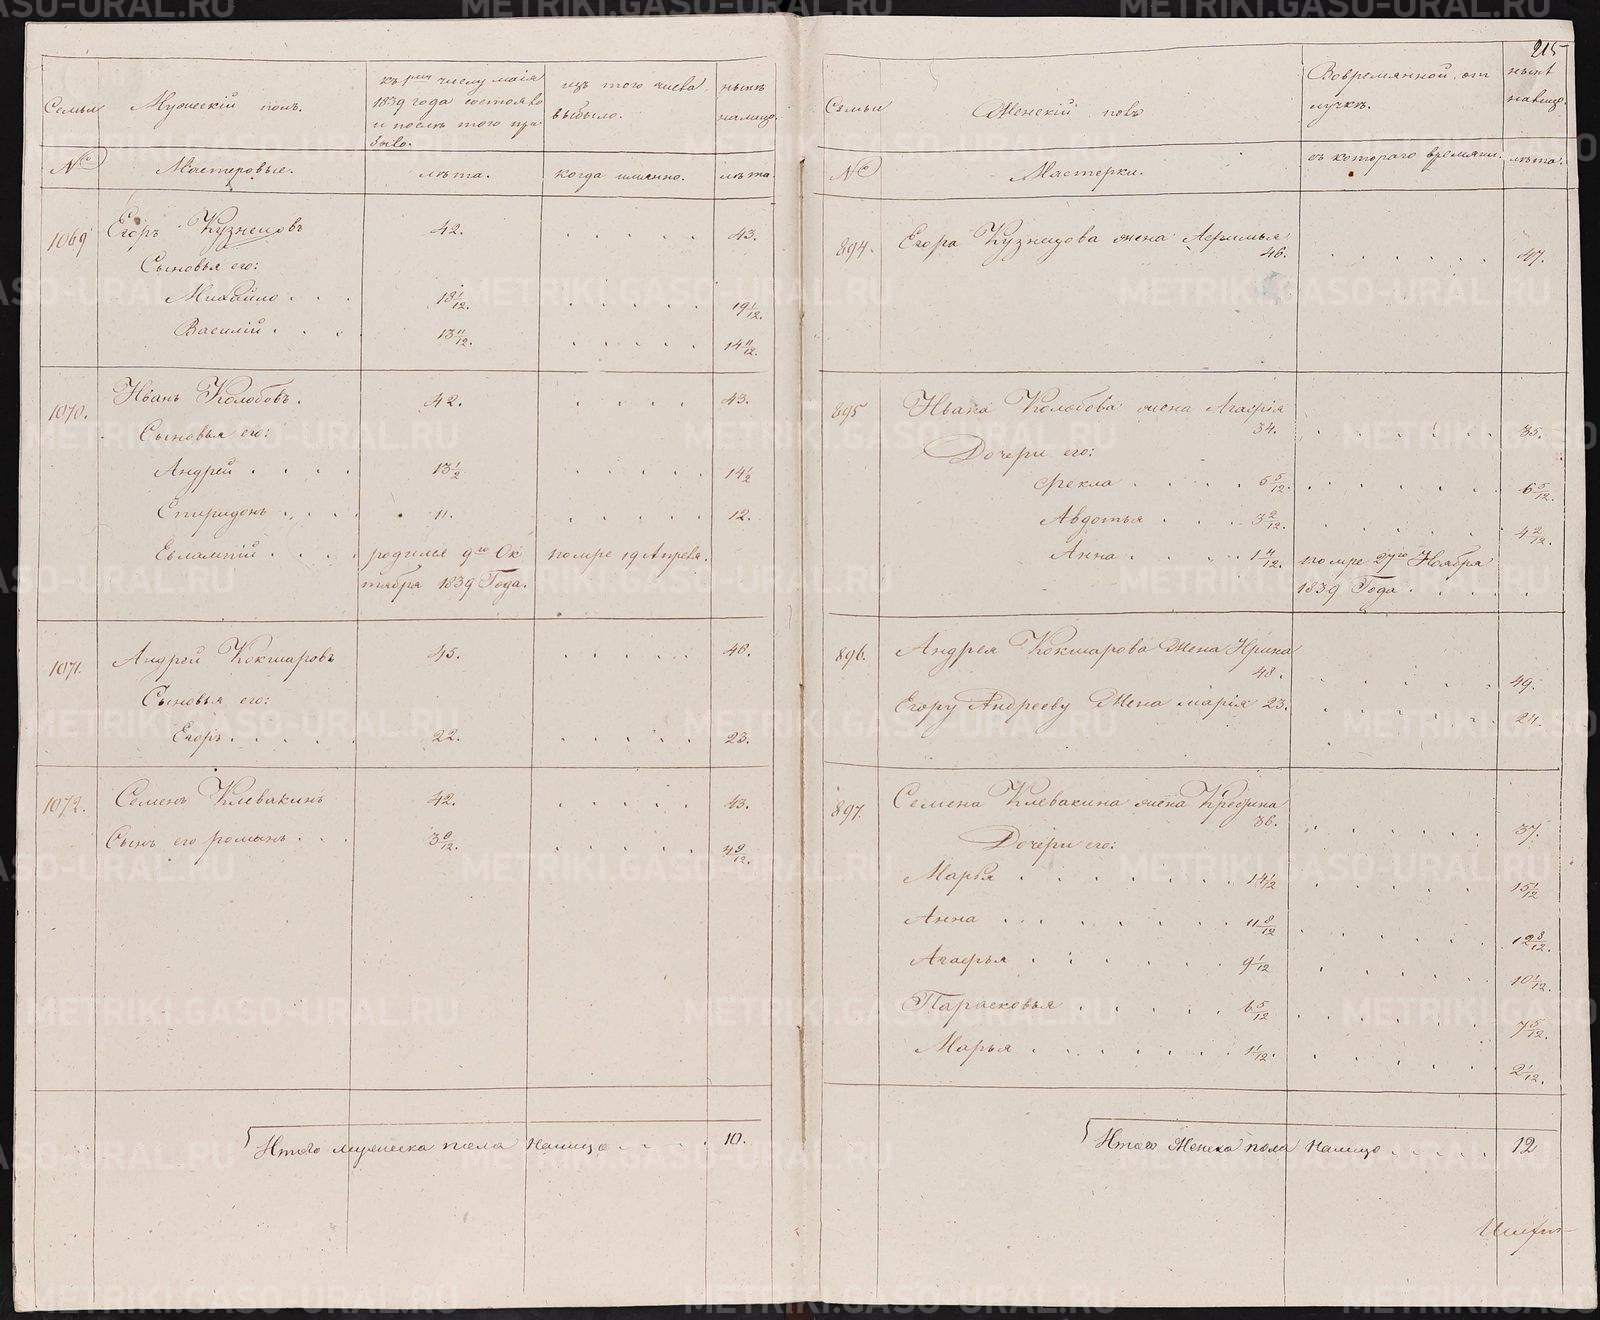 215
Семьи
Мужескій полъ.
къ 1му числу маія
1839 года состояло
и после того при
было.
изъ того числа
выбыло.
ныне
налицо.
№
Мастеровые.
лѣта.
когда имянно.
лѣта.
1069
Егоръ Кузнецовъ
42.
43.
Сыновья его:
Михайло . . .
18 1/12.
19 1/12.
Василій . . .
13 11/12.
14 11/12.
1070.
Иванъ Колобовъ.
42.
43.
Сыновья его:
Андрей . . . .
13 1/2
14 1/2
Спиридонъ . . . .
11.
12.
Евлампій . . . .
родился 9го Ок
помре 19 Апреля.
тября 1839 Года.
1071.
Андрей Кокшаровъ
45.
46.
Сыновья его:
Егоръ . . . .
22.
23.
1072.
Семенъ Клевакинъ
42.
43.
Сынъ его романъ . . .
3 9/12.
4 9/12.
Итого мужеска пола налицо . . . . .
10.
Семьи
Женскій полъ
Вовремянной от
лучкѣ.
нынѣ
налицо.
№
Мастерки.
съ котораго времяни.
лѣта.
894.
Егора Кузнецова жена
46.
47.
895
Ивана Колобова жена Агафія
34.
35.
Дочери его:
Фекла . . . .
5 5/12.
6 5/12.
Авдотья . . . .
3 2/12.
4 2/12.
Анна . . . . .
1 4/12.
помре 27го Ноября
1839 Года . . . . .
896.
Андрея Кокшарова Жена Ирина
48.
49.
Егору Андрееву Жена марія 23.
24.
897.
Семена Клевакина жена
36.
37.
Дочери его:
Марья . . . . . . .
14 1/12
15 1/12
Анна . . . . . . .
11 8/12
12 8/12.
Агафья . . . . . .
9 1/12
10 1/12.
Парасковья . . . . .
6 5/12
7 5/12.
Марья . . . . . . .
1 1/12.
2 1/12.
Итого Женска пола налицо . . . . .
12
METRIKI.GASO-URAL.RU